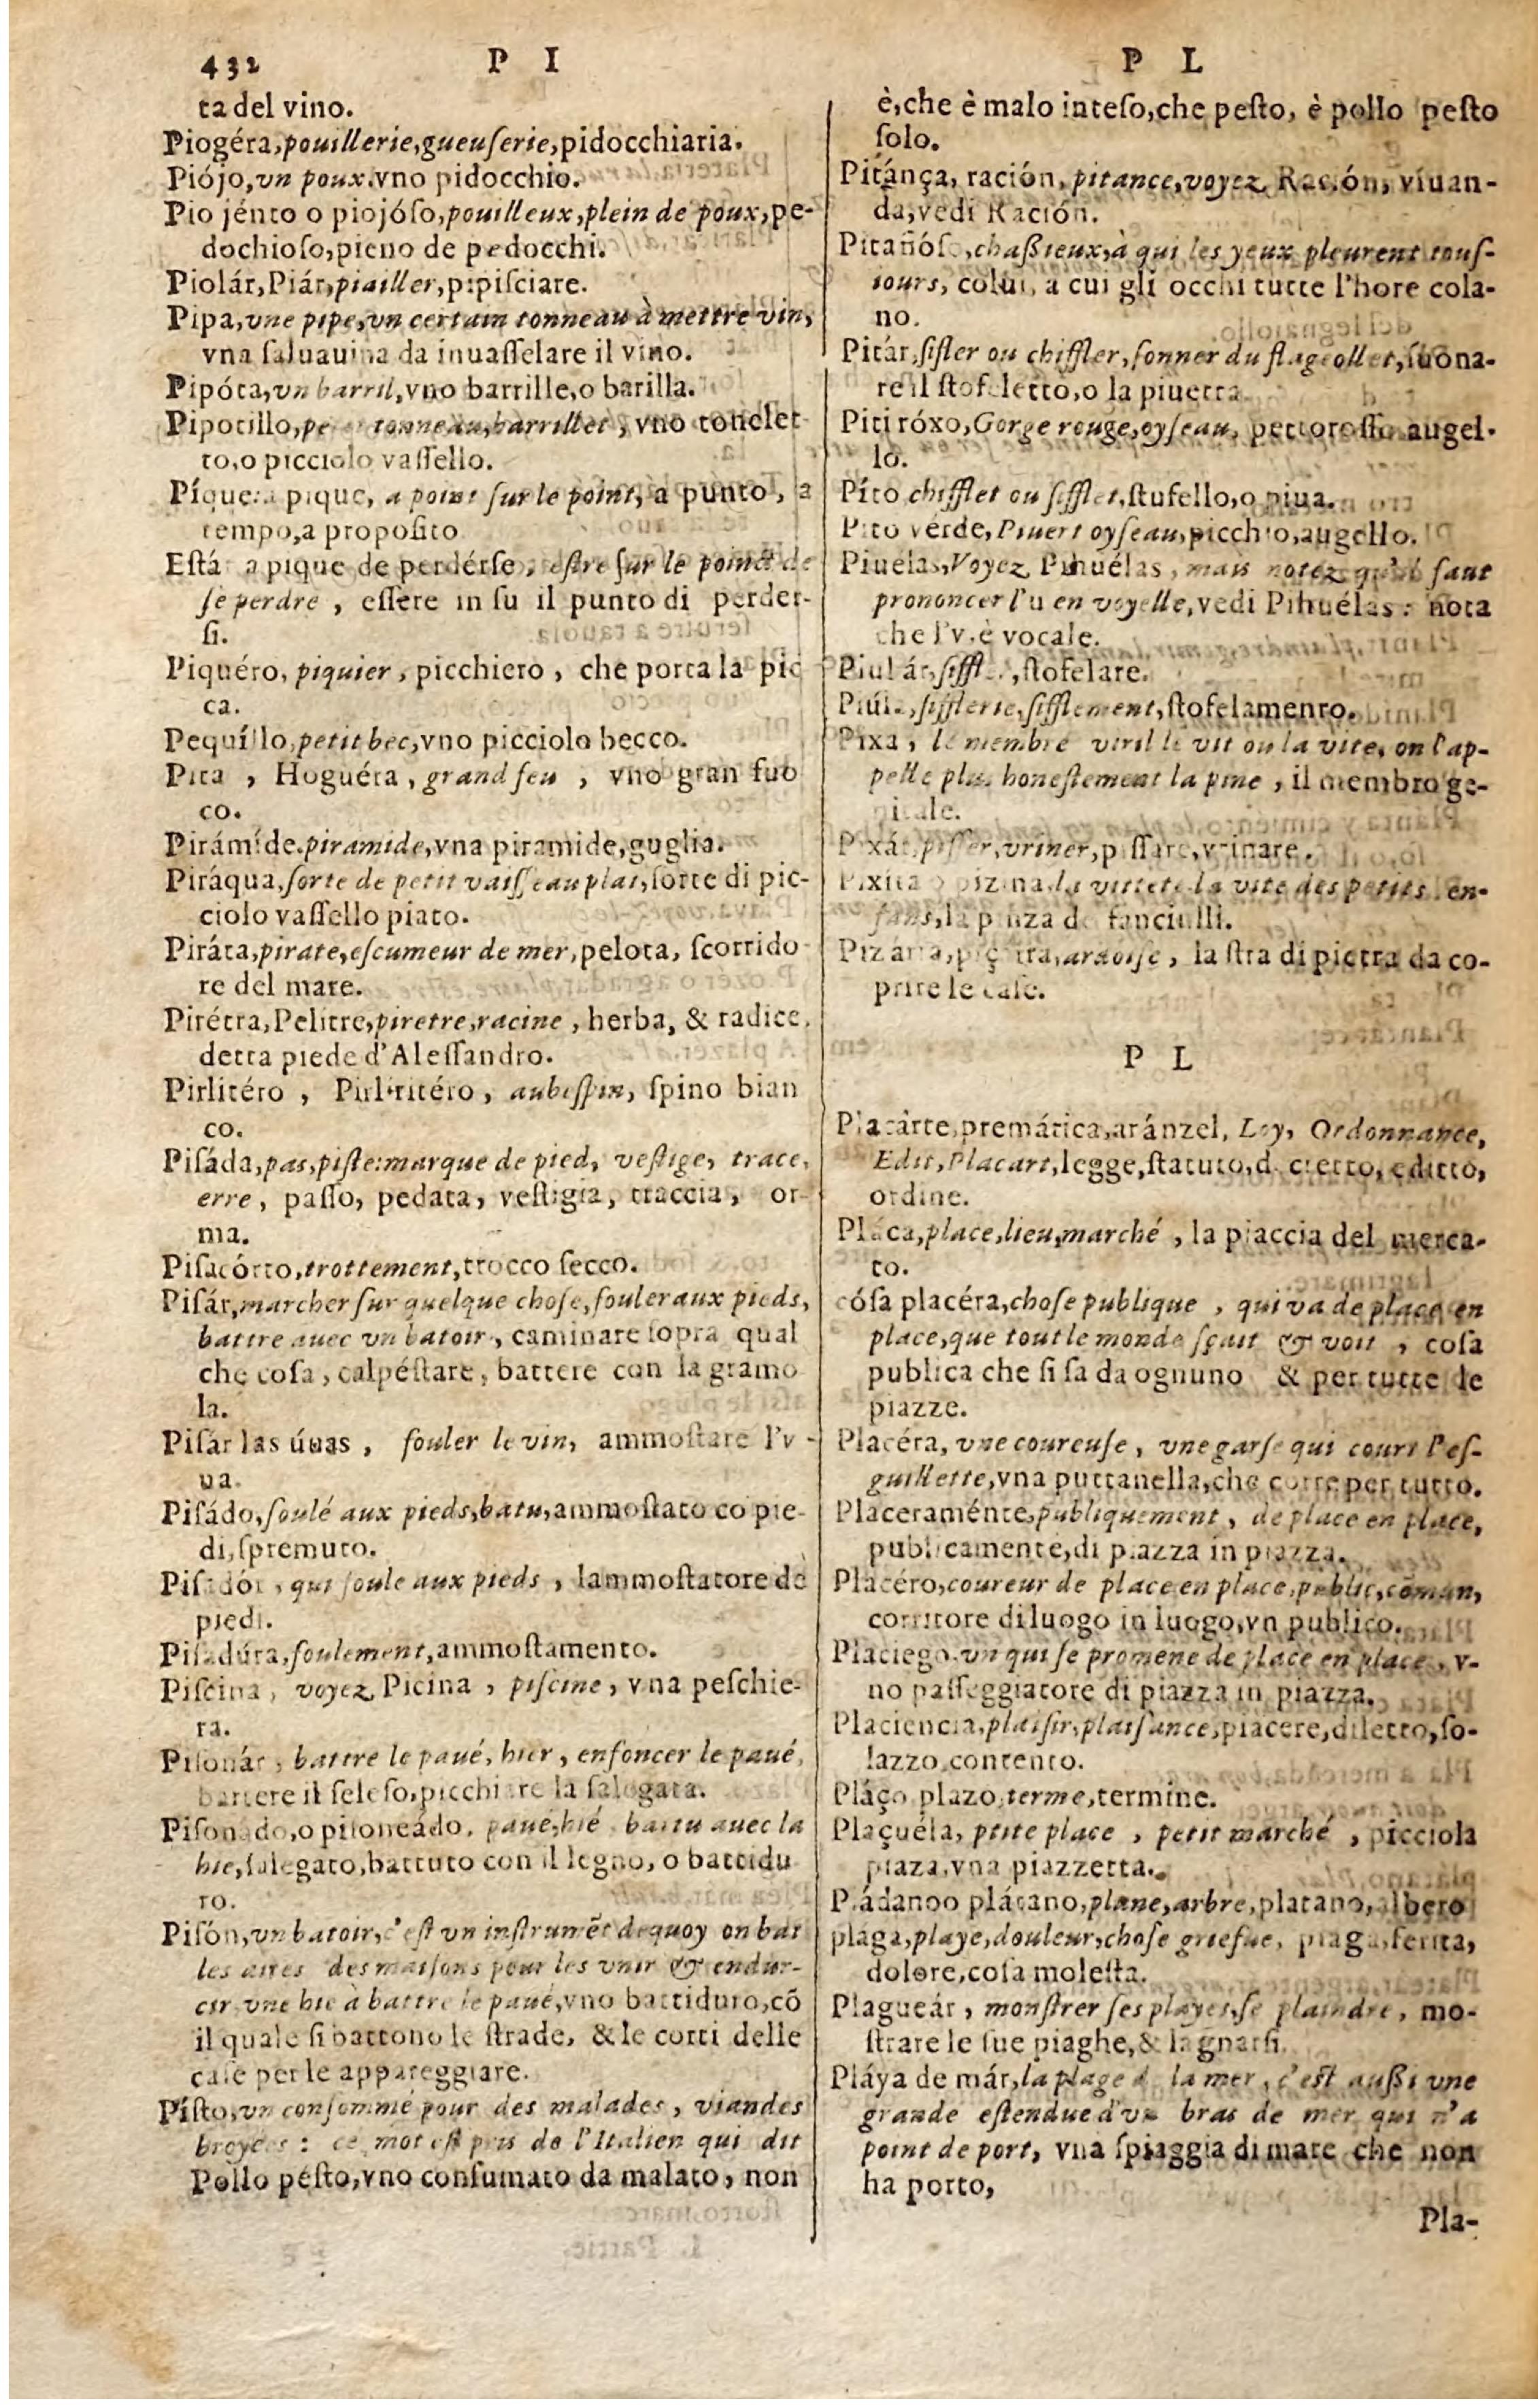 432 P I
ta del vino.
Piogéra, pouillerie, gueuſerie, pidocchiaria.
Piójo, vn poux. vno pidocchio.
Pio jénto o piojóſo, pouilleux, plein de poux, pe-
dochioſo, pieno de pedocchi.
Piolár, Piár, piailler, pipiſciare.
Pipa, vne pipe, vn certain tonneau à mettre vin,
vna ſaluauina da inuaſſelare il vino.
Pipóta, vn barril, vno barrille, o barilla.
Pipotillo, tonneau, barrillet, vno tonelet
to, o picciolo vaſſello.
Píque: a pique, a point ſur le point, a punto, a
tempo, a propoſito
Está a pique de perdérſe, eſtre ſur le poinct de
ſe perdre, eſſere in ſu il punto di perder-
ſi.
Piquéro, piquier, picchiero, che porta la pic
ca.
Pequíllo, petit bec, vno picciolo becco.
Pira, Hoguéra, grand feu, vno gran fuo
co.
Pirámide. piramide, vna piramide, guglia.
Piráqua, ſorte de petit vaiſſeau plat, ſorte di pic-
ciolo vaſſello piato.
Piráta, pirate, eſcumeur de mer, pelota, ſcorrido
re del mare.
Pirétra, Pelitre, piretre, racine, herba, & radice,
detta piede d'Aleſſandro.
Pirlitéro, Pirlritéro, aubeſpin, ſpino bian
co.
Piſáda, pas, piſte: marque de pied, veſtige, trace,
erre, paſſo, pedata, veſtigia, traccia, or-
ma.
Piſacórto, trottement, trocco ſecco.
Piſár, marcher ſur quelque choſe, fouler aux pieds,
battre auec vn batoir, caminare ſopra qual
che coſa, calpéſtare, battere con la gramo
la.
Piſár las úuas, fouler le vin, ammoſtare l'v-
ua.
Piſádo, foulé aux pieds, batu, ammoſtato co pie-
di, ſpremuto.
Piſadór, qui foule aux pieds, lammoſtatore dè
piedi.
Piſadúra, foulement, ammoſtamento.
Piſcina, voyez Picina, piſcine, vna peſchie-
ra.
Piſonár, battre le paué, hier, enfoncer le paué,
battere il ſeleſo, picchiare la ſalegata.
Piſonádo, o piſoneádo. paué, hié battu auec la
hie, ſalegato, battuto con il legno, o battidu
ro.
Piſón, vn batoir, c'eſt vn inſtrumẽt dequoy on bat
les aires des maiſons pour les vnir & endur-
cir vne hie à battre le paué, vno battiduro, cõ
il quale ſi battono le ſtrade, & le corti delle
caſe per le appareggiare.
Píſto, vn conſommé pour des malades, viandes
broyees: ce mot eſt pris de l'Italien qui dit
Pollo péſto, vno conſumato da malato, non
P L
è, che è malo inteſo, che peſto, è pollo peſto
ſolo.
Pitánça, ración, pitance, voyez Ración, viuan-
da, vedi Ración.
Pitañóſo, chaßieux, à qui les yeux pleurent touſ-
iours, colui, a cui gli occhi tutte l'hore cola-
no.
Pitár, ſifler ou chiffler, ſonner du flageollet, ſuona-
re il ſtofeletto, o la piuetta.
Piti róxo, Gorge rouge, oyſeau, pettoroſſo augel-
lo.
Píto chifflet ou ſifflet, ſtufello, o piua.
Pito vérde, Piuert oyſeau, picchio, augello.
Piuelas, Voyez Pihuélas, mais notez qu'il faut
prononcer l'u en voyelle, vedi Pihuélas: nota
che l'v. è vocale.
Piulár, ſiffl , ſtofelare.
Piúla, ſifflerie, ſifflement, ſtofelamento.
Pixa, le membre viril le vit ou la vite, on l'ap-
pelle plus honeſtement la pine, il membro ge-
nitale.
Pixár, piſſer, vriner, piſſare, vrinare.
Pixita o pizina. la vittete la vite des petits en-
fans, la pinza de fanciulli.
Pizárra, piçarra, ardoiſe, la ſtra di pietra da co-
prire le caſe.
P L
Placárte, premática, aránzel, Loy, Ordonnance,
Edit, Placart, legge, ſtatuto, decretto, editto,
ordine.
Pláça, place, lieu, marché, la piaccia del merca-
to.
cóſa placéra, choſe publique, qui va de place en
place, que tout le monde ſçait & voit, coſa
publica che ſi ſa da ognuno & per tutte le
piazze.
Placéra, vne coureuſe, vne garſe qui court l'eſ-
guillette, vna puttanella, che corre per tutto.
Placeraménte, publiquement, de place en place,
publicamente, di piazza in piazza.
Placéro, coureur de place en place, public, cõmun,
corritore di luogo in luogo, vn publico.
Placiego. vn qui ſe promene de place en place, v-
no paſſeggiatore di piazza in piazza.
Placiencia, plaiſir, plaiſance, piacere, diletto, ſo-
lazzo, contento.
Pláço, plazo, terme, termine.
Plaçuéla, ptite place, petit marché, picciola
piaza, vna piazzetta.
Pládano o plátano, plane, arbre, platano, albero
plaga, playe, douleur, choſe griefue, piaga, ferita,
dolore, coſa moleſta.
Plagueár, monſtrer ſes playes, ſe plaindre, mo-
ſtrare le ſue piaghe, & lagnarſi.
Pláya de már, la plage d la mer, c'eſt außi vne
grande eſtendue d'vn bras de mer qui n'a
point de port, vna ſpiaggia di mare che non
ha porto,
Pla-